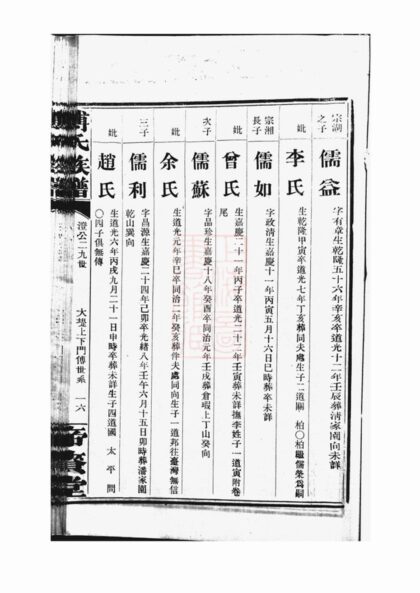 宗湖之子
儒益
字有章生乾隆五十六年辛亥卒道光十二年壬辰葬清家園向未詳
妣
李氏
生乾隆甲寅卒道光七年丁亥葬同夫處生子二道關 柏〇柏繼儒榮為嗣
宗湘長子
儒如
字政清生嘉慶十一年丙寅五月十六日巳時葬卒未詳
妣
曾氏
生嘉慶二十一年丙子卒道光二十二年壬寅葬未詳撫李姓子一道寅附卷尾
次子
儒蘇
字品珍生嘉慶十八年癸酉卒同治元年壬戌葬倉嘏上丁山癸向
妣
余氏
生道光元年辛巳卒同治二年癸亥葬伴夫處同向生子一道邦往臺灣無信
三子
儒利
字昌源生嘉慶二十四年己卯卒光緒八年壬午六月十五日卯時葬潘家園乾山巽向
妣
趙氏
生道光六年丙戌九月二十一日申時卒葬未詳生子四道國 太 平 間〇四子俱無傳
氏族譜
澄公二九世
大塘上下門傳世系
一六
堂